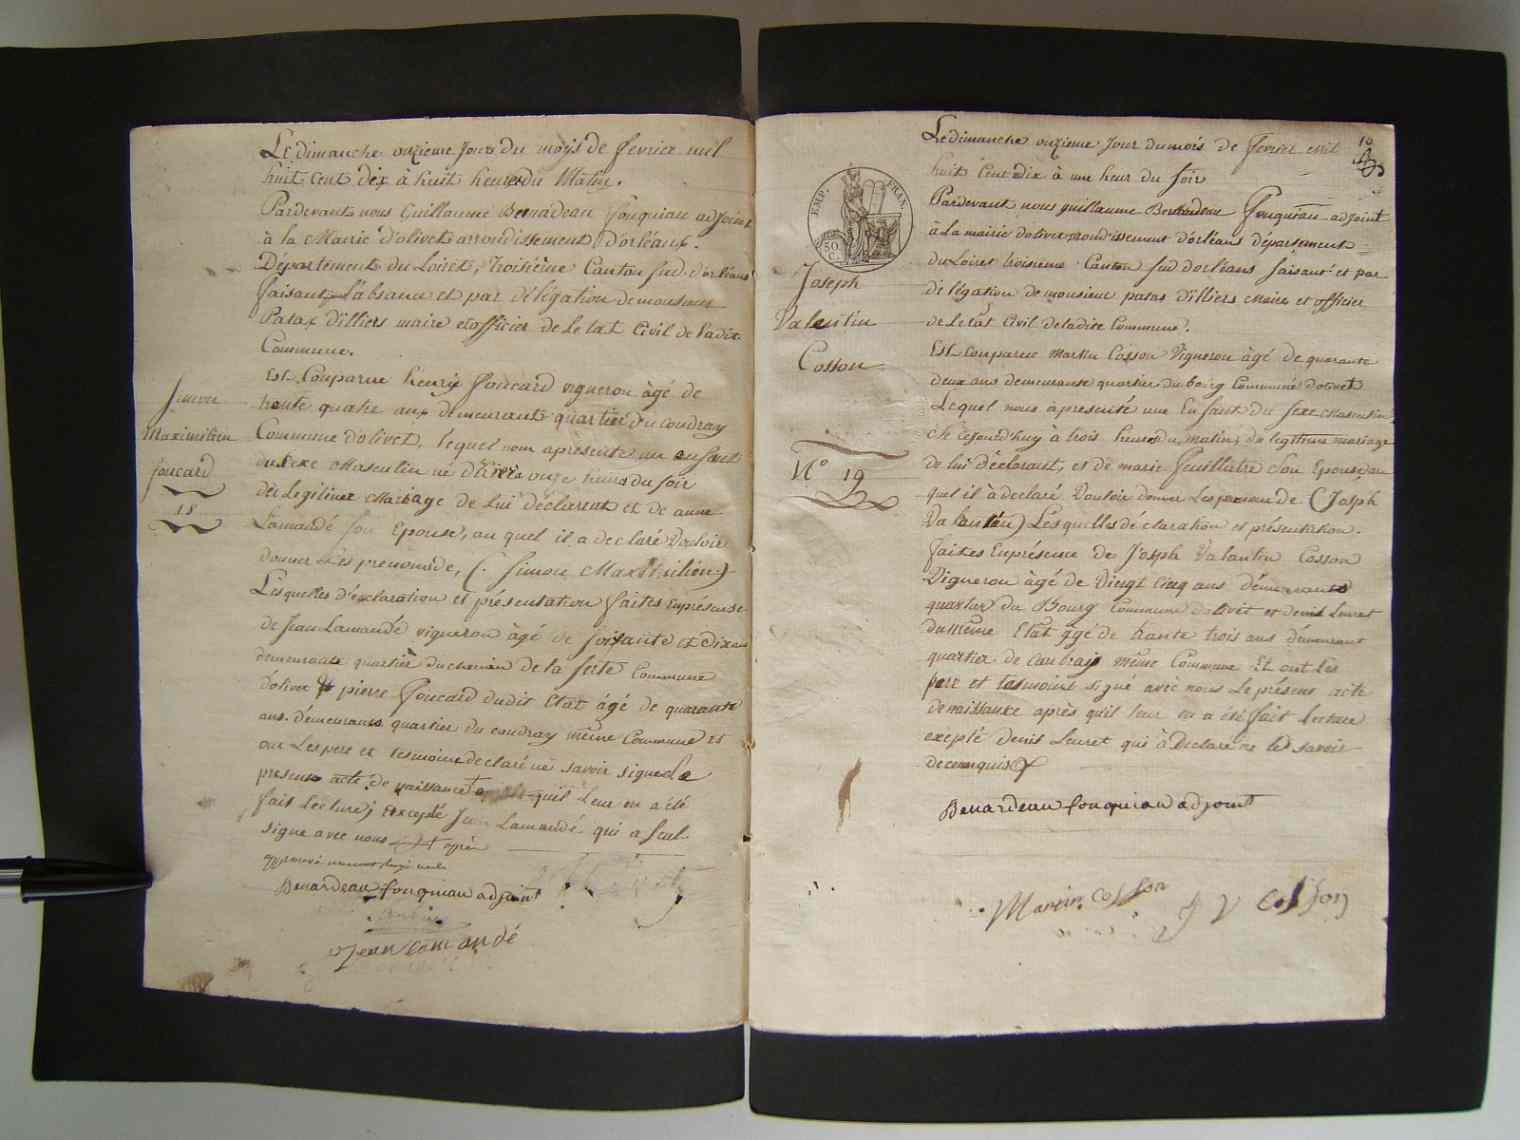 Le dimanche onzieme Jour du mois de fevrier mil
huit cent dix à huit heures du Matin.
Pardevant nous Guillaume Benardeau fouquiau adjoint
à la Mairie d'olivet arrondissement D'orléans.
Département du Loiret, Troisième Canton Sud d'orléans
faisant l'absance et par délégation de monsieur
Patas D'illiers maire et officier de Le tat Civil de Ladite
Commune.
Est Comparue henrix foucard vigneron àgé de
trente quatre ans demeurant quartier du coudray
Commune d'olivet, lequel nous aprésenté un enfant
du sexe Masculin né d'hier à onze heures du soir
de Legitime Mariage de Lui déclarent et de anne
Lamandé Son Epouse, au quel il a declaré Vouloir
donner Les prenoms de, (. Simon Maximilien.)
Les quelles déclaration et présentation faites En présense
de Jean Lamandé vigneron àgé de soisante et dix ans
demeurant quartièr du chemin de la ferté Commune
d'olivet & pierre foucard dudit Etat àgé de quarante
ans demeurant quartier du coudray même Commune et
ont Les pere et tesmoins declaré ne savoir signe Le
present acte de naissance quil Leur en a été
fait Lecture; Excepté Jean Lamandé qui a seul
signe avec nous après
approuvé
Benardeau fouquiau adjoint
Jean Lamandé
Simon
Maximilien
foucard
18
10
EMP. FRAN.
50
C.
Le dimanche onzieme Jour du mois de fevrier mil
huit Cent dix à une heur du soir
Pardevant nous guillaume Benardeau fouquiau adjoint
à La mairie dolivet arrondissement d'orléans département
du Loiret troisieme Canton sud dorléans faisant et par
délégation de monsieur patas d'illiers Maire et officier
de Le tat Civil de ladite Commune.
Est Comparue Martin Cosson Vigneron àgé de quarante
deux ans demeurant quartier du bourg Commune dolivet
Lequel nous à présenté une Enfant du sexe Masculin
né cejourd'huy à trois heures du matin, de legitime mariage
de lui déclarant, et de marie feuillatre Son Epouse au
quel il à declaré Vouloir donner Les prenoms de (Joseph
Valantin) Les quelles déclaration et présentation
faites En présence de Joseph Valantin Cosson
Vigneron àgé de Vingt Cinq ans démeurant
quartier du Bourg Commune d'olivet et denis Leuret
du même Etat àgé de trante trois ans démeurant
quartier de Caubray même Commune Et ont Les
pere et tesmoins signé avec nous Le présent acte
de naissance après quil leur en a été fait lecture
excepté Denis Leuret qui à Déclaré ne le savoir
de ce enquis
Benardeau fouquiau adjoint
Martin Cosson J V Cosson
Joseph
Valentin
Cosson
N° 19